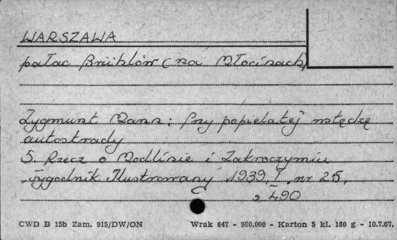 WARSZAWA
pałac Brühlów (na Młocinach)
Zygmunt Mann: Przy popielatej wstędze
autostrady
5. Rzecz o Modlinie i Zakroczymiu
"Tygodnik Ilustrowany" 1939 I nr 25,
s. 490
CWD B 15b Zam. 915/DW/ON Wrak 647 - 900.000 - Karton 5 kl. 180 g - 10.7.67.